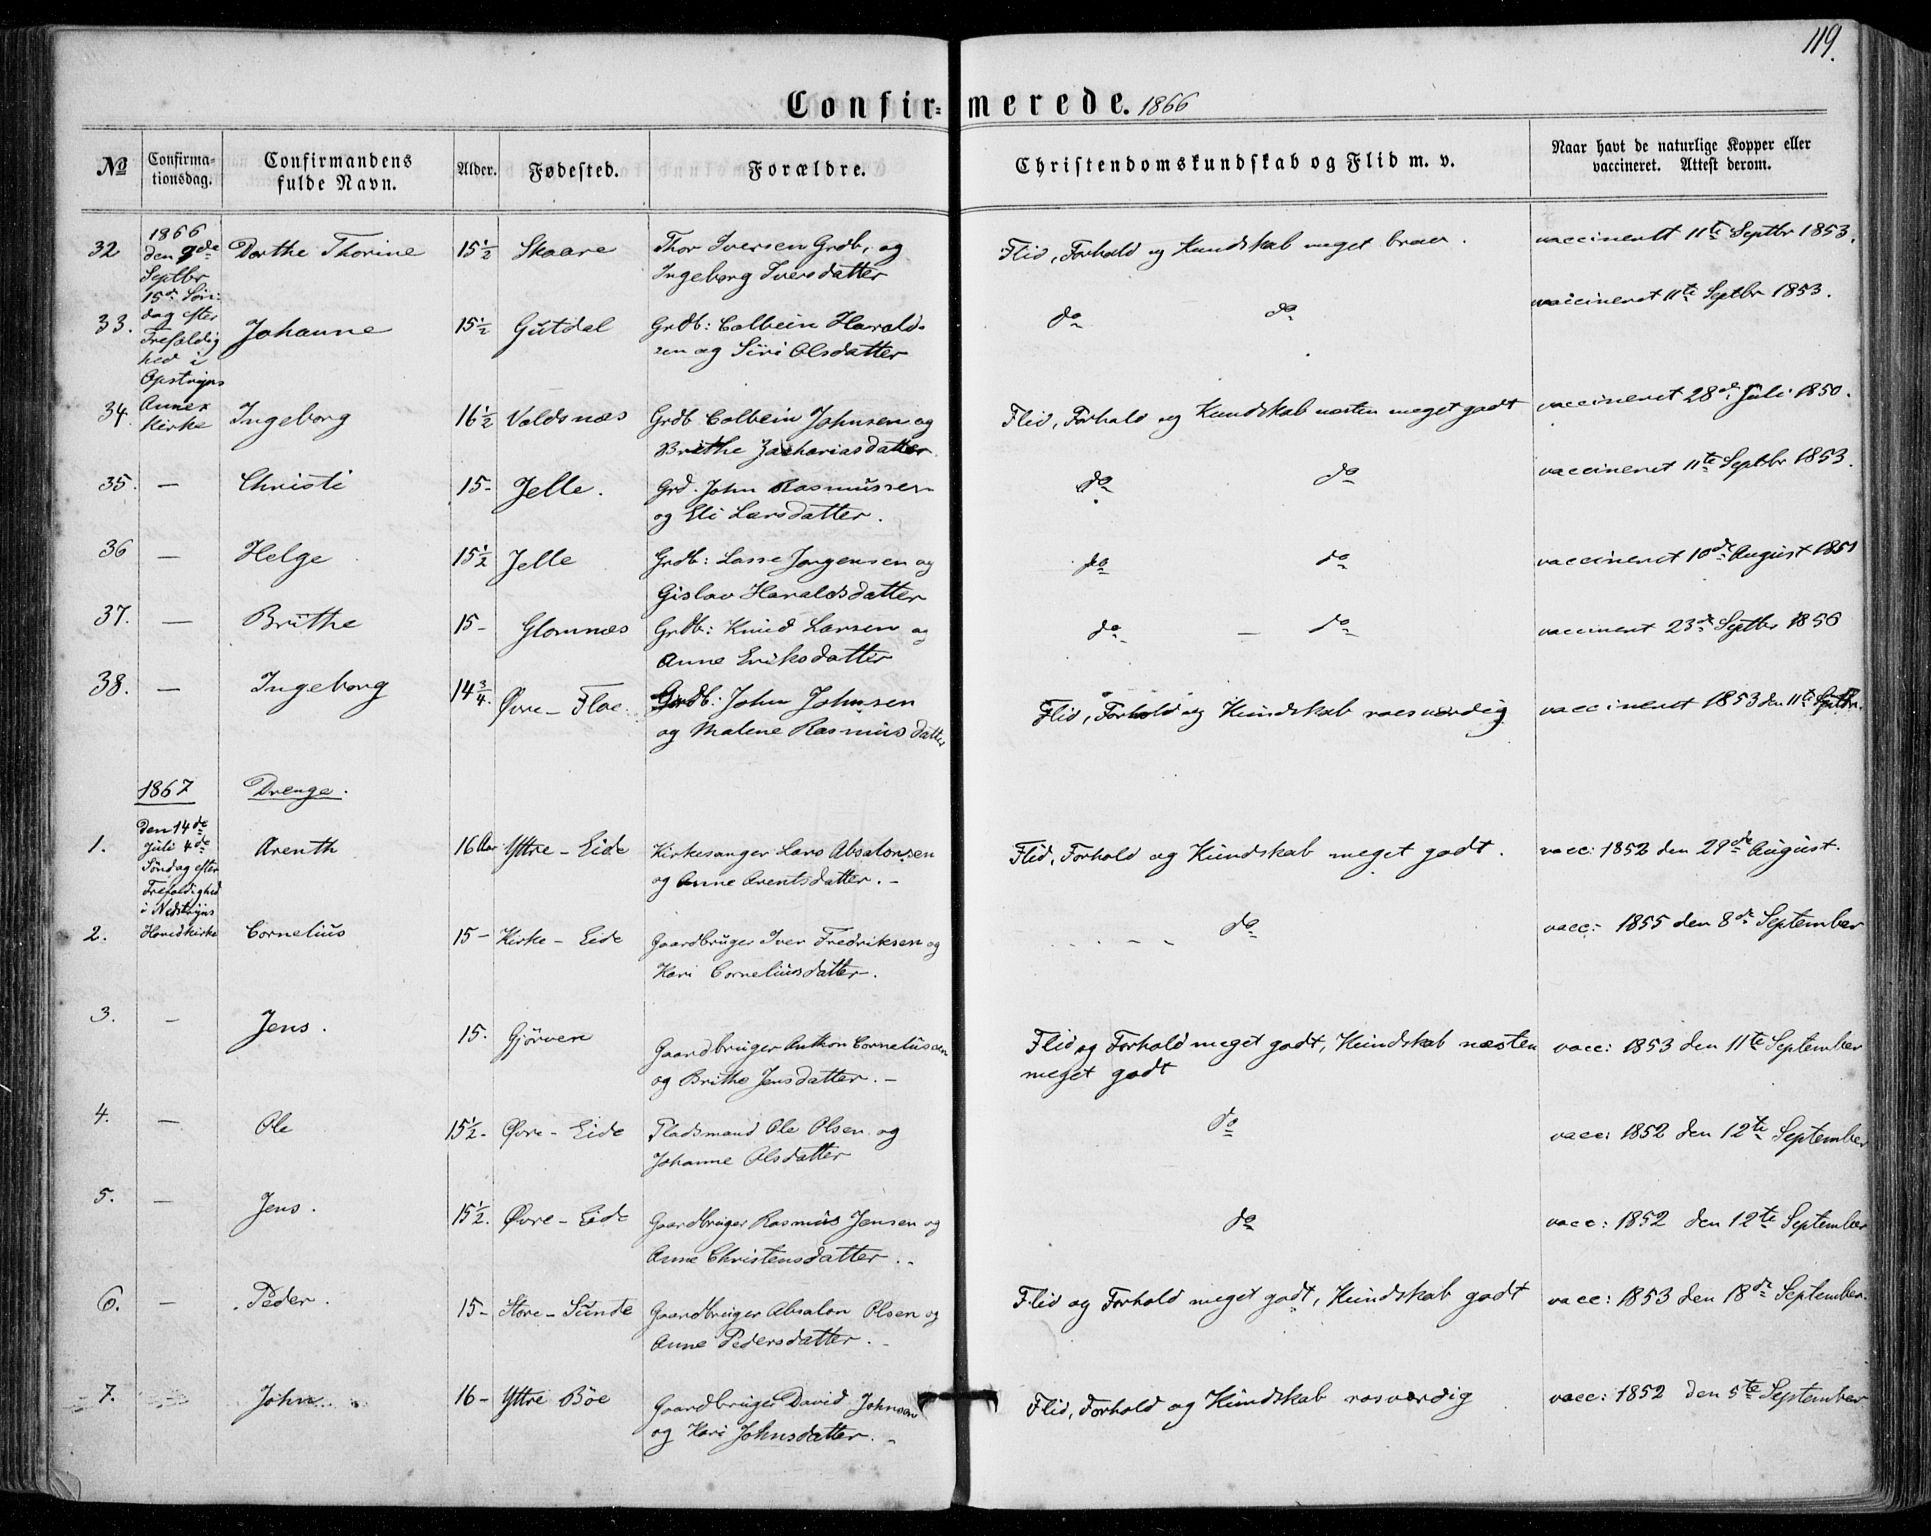 119.
Confirmerede. 1866
No Confirmationsdag. Confirmandens fulde Navn. Alder. Fødested. Forældre. Christendomskundskab og Flid m. v. Naar havt de naturlige Kopper eller vaccineret. Attest derom.
1866
den 9de
Septbr
15de Søn-
dag efter
Trefoldig
hed i
Opstryns
Annex
Kirke
32 Dorthe Thorine 15 1/2 Skaare Thor Iversen Grdb, og
Ingeborg Iversdatter
Flid, Forhold og Kundskab meget brav. vaccineret 11te Septbr 1853.
33. Johanne 15 1/2 Gutdal Grdb: Colbein Harald-
sen og Siri Olsdatter
do do vaccineret 11te Septbr 1853.
34. Ingeborg 16 1/2 Valdsnæs Grdb Colbein Johnsen og
Brithe Zachariasdatter
Flid, Forhold og Kundskab næsten meget godt vaccineret 28de Juli 1850.
35. — Christi 15- Jelle. Grd. John Rasmussen
og Eli Larsdatter.
do do vaccineret 11te Septbr 1853.
36 — Helge 15 1/2 Jelle Grdb: Lasse Jørgensen og
Gislav Haraldsdatter
do do vaccineret 10de August 1851
37. — Brithe 15- Glomnæs Grdb: Knud Larsen og
Anne Eriksdatter
do — do vaccineret 23de Septbr 1856
38. — Ingeborg 14 3/4. Øvre-Floe. Grdb: John Johnsen
og Malene Rasmusdatter
Flid, Forhold og Kundskab roesværdig vaccineret 1853 den 11te Septbr.
1867 Drenge.
den 14de
Juli 4de
Søndag efter
Trefoldighed
i Nedstryns
Hovedkirke
1. Arenth 16 Aar Yttre-Eide Kirkesanger Lars Absalonsen
og Anne Arentsdatter. -
Flid, Forhold og Kundskab meget godt. vacc: 1852 den 29de August.
2. Cornelius 15- Kirke-Eide Gaardbruger Iver Fredriksen og
Kari Corneliusdatter.
do vacc: 1855 den 8de September
3. — Jens. 15. Gjørven Gaardbruger Anthon Corneliussen
og Brithe Jensdatter. -
Flid og Forhold meget godt, Kundskab næsten
meget godt
vacc: 1853 den 11te September
4. — Ole 15 1/2- Øvre-Eide Pladsmand Ole Olsen og
Johanne Olsdatter
do vacc: 1852 den 12te September
5. — Jens. 15 1/2. Øvre-Eide Gaardbruger Rasmus Jensen og
Anne Christensdatter.
do vacc: 1852 den 12te September
6. — Peder. 15- Store-Sunde Gaardbruger Absalon Olsen og
Anne Pedersdatter. -
Flid og Forhold meget godt, Kundskab godt vacc: 1853 den 18de September.
7. John 16- Yttre Böe Gaardbruger David Johnsen
og Kari Johnsdatter. -
Flid, Forhold og Kundskab rosværdig vacc: 1852 den 5te September